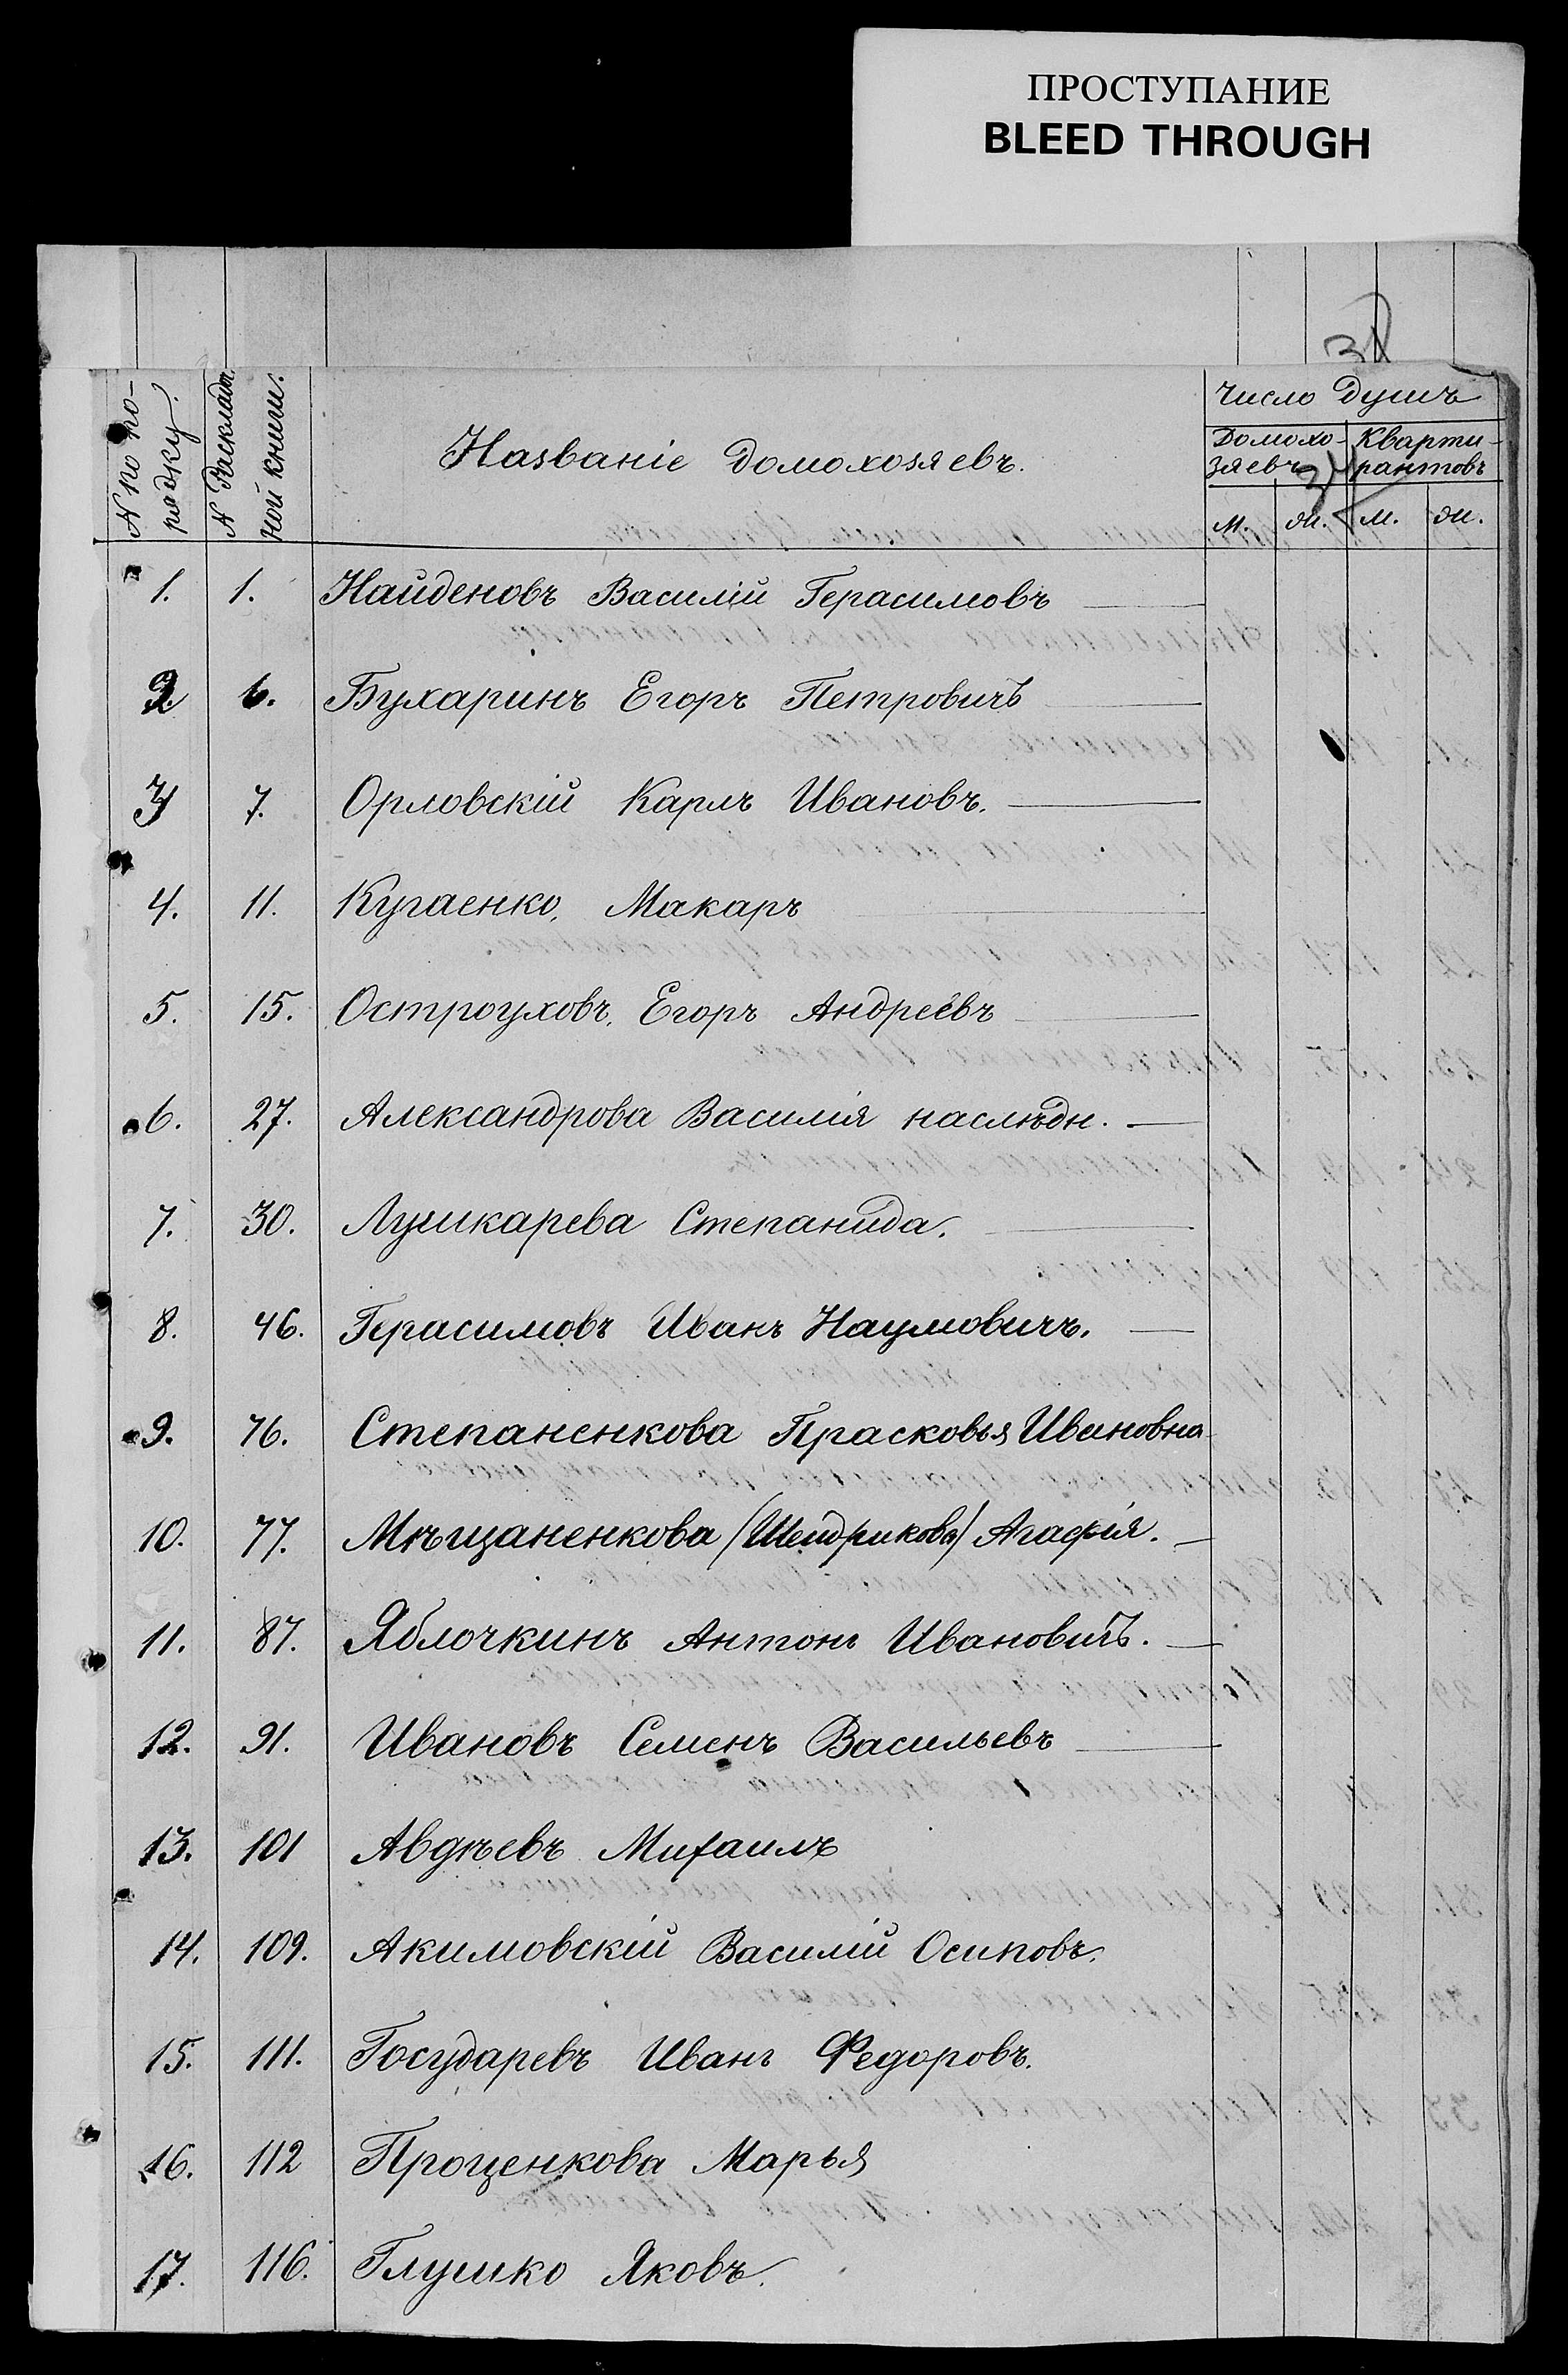 ПРОСТУПАНИЕ
BLEED THROUGH
N по по-
рядку.
N Раскладо
ной книги.
Названіе домохозяевъ.
Число душъ
Домохо-
зяевъ
Кварти-
рантовъ
м. ж. м. ж.
1. 1. Найденовъ Василій Герасимовъ
2 6. Бухаринъ Егоръ Петровичъ
3 7. Орловскій Карлъ Ивановъ.
4. 11. Кугаенко, Макаръ
5. 15. Остроуховъ, Егоръ Андреевъ
6. 27. Александрова Василія наслѣдн.
7. 30. Лушкарева Степанида.
8. 46. Герасимовъ Иванъ Наумовичъ.
9. 76. Степаненкова Прасковья Ивановна
10. 77. Мѣщаненкова (Шендрикова) Агафія.
11. 87. Яблочкинъ Антонъ Ивановичъ.
12. 91. Ивановъ Семенъ Васильевъ
13. 101 Авдѣевъ Михаилъ
14. 109. Акимовскій Василій Осиповъ.
15. 111. Государевъ Иванъ Федоровъ.
16. 112 Проценкова Марья
17. 116. Глушко Яковъ.